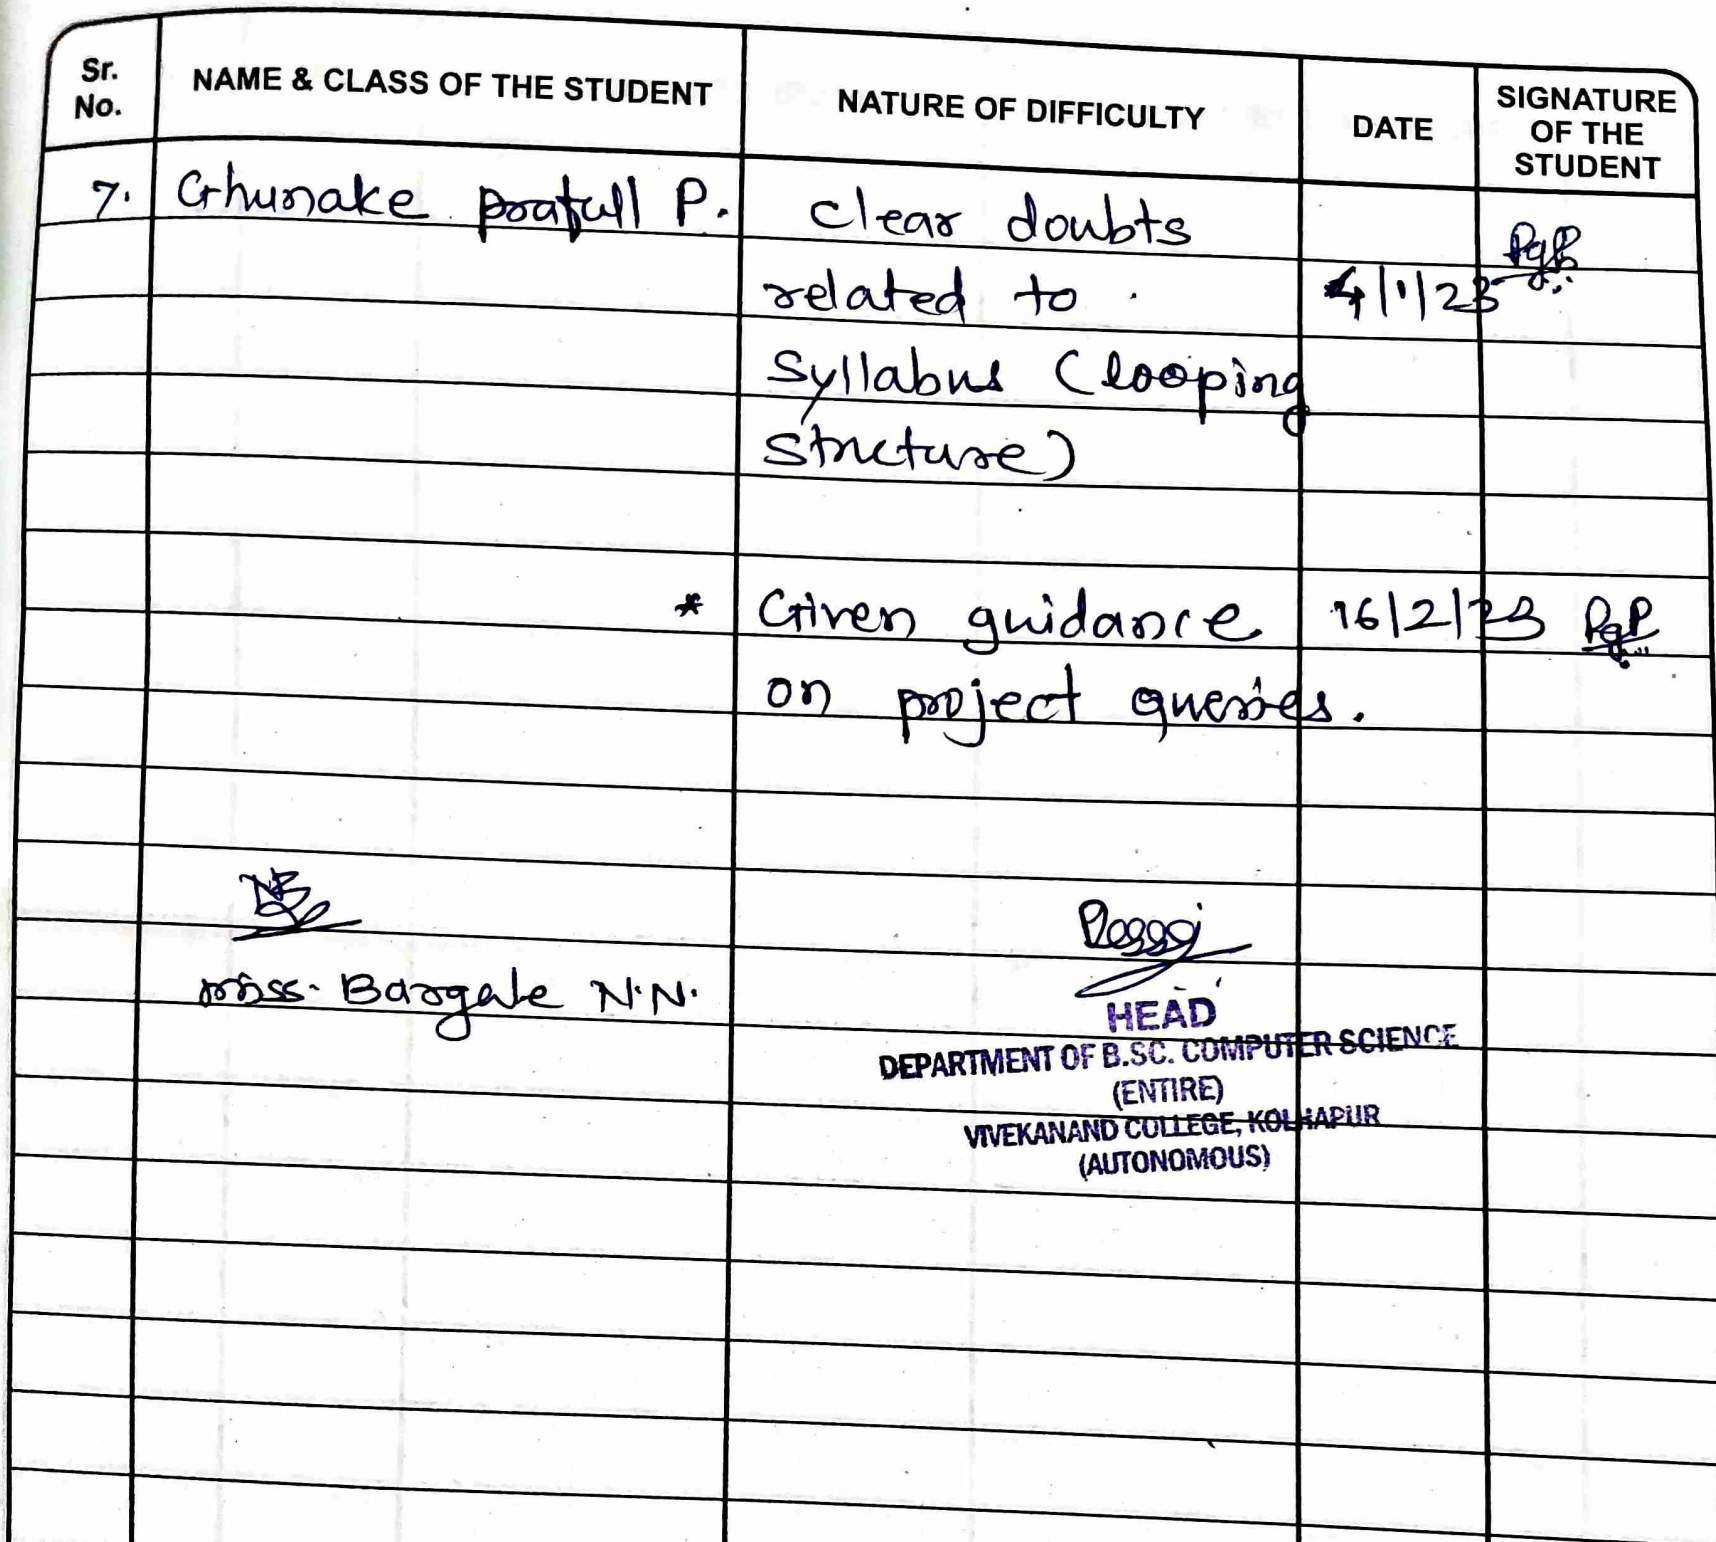 Sr. No.
NAME & CLASS OF THE STUDENT
NATURE OF DIFFICULTY
DATE
SIGNATURE OF THE STUDENT
7. Ghunake prafull P. clear doubts
related to 4/1/23
Syllabus (looping
Structure)
* Given guidance 16/2/23 PgP
on project queries.
miss. Bargale N.N.
HEAD
DEPARTMENT OF B.SC. COMPUTER SCIENCE
(ENTIRE)
VIVEKANAND COLLEGE, KOLHAPUR
(AUTONOMOUS)